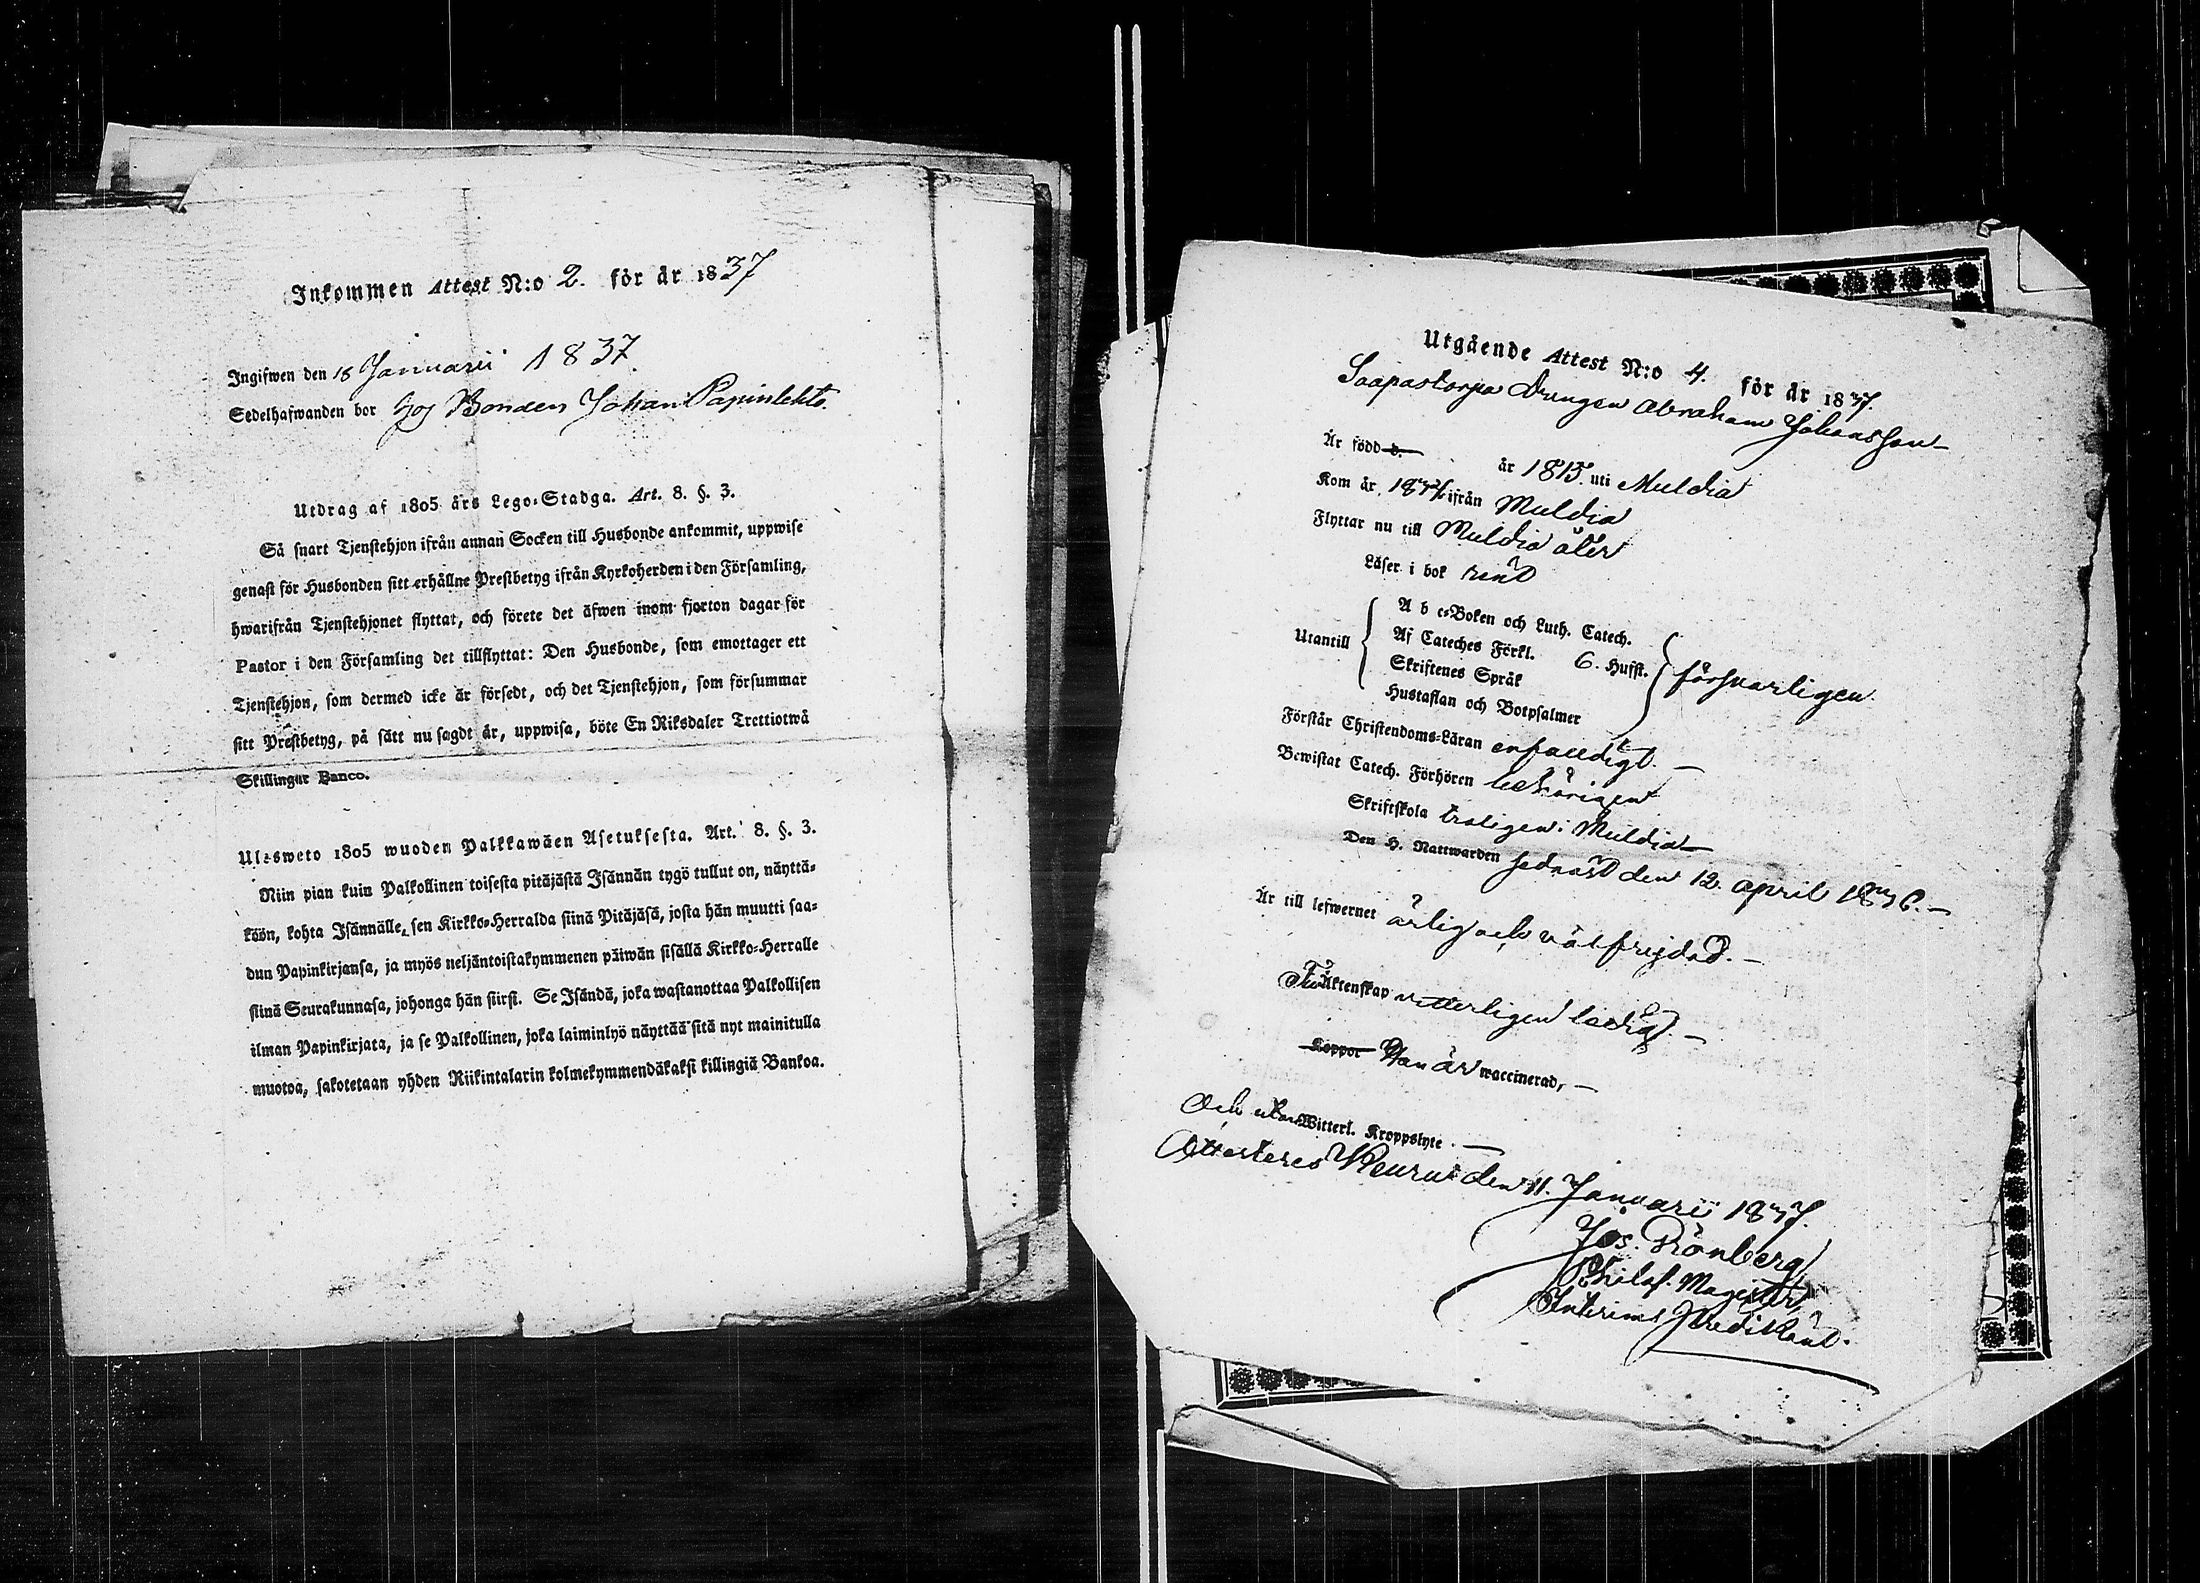 Inkommen Attest N:o 2. för år 1837
Ingifwen den 18 Januarii 1837.
Sedelhafwanden bor hos Bonden Johan Papinlehto.
Utdrag af 1805 års Lego-Stadga. Art. 8. §. 3.
Så snart Tjenstehjon ifrån annan Socken till Husbonde ankommit, uppwise
genast för Husbonden sitt erhållne Prestbetyg ifrån Kyrkoherden i den Församling,
hwarifrån Tjenstehjonet flyttat, och förete det äfwen inom fjorton dagar för
Pastor i den Församling det tillflyttat: Den Husbonde, som emottager ett
Tjenstehjon, som dermed icke är försedt, och det Tjenstehjon, som försummar
sitt Prestbetyg, på sätt nu sagdt är, uppwisa, böte En Riksdaler Trettiotwå
Skillingar Banco.
Ulosweto 1805 wuoden Palkkawäen Asetuksesta. Art. 8. §. 3.
Niin pian kuin Palkollinen toisesta pitäjästä Isännän tygö tullut on, näyttä-
köön, kohta Isännälle, sen Kirkko-Herralda siinä Pitäjäsä, josta hän muutti saa-
dun Papinkirjansa, ja myös neljäntoistakymmenen päiwän sisällä Kirkko-Herralle
siinä Seurakunnasa, johonga hän siirsi. Se Isändä, joka wastanottaa Palkollisen
ilman Papinkirjata, ja se Palkollinen, joka laiminlyö näyttää sitä nyt mainitulla
muotoa, sakotetaan yhden Riikintalarin kolmekymmendäkaksi killingiä Bankoa.
Utgående Attest N:o 4. för år 1837.
Drengen Abraham Johansson
Är född d. år 1815. uti Muldia
Kom år 1834 ifrån Muldia
Flyttar nu till Muldia åter
Läser i bok rent
Utantill
A b c-Boken och Luth. Catech.
Af Cateches Förkl. 6. Hufst.
Skriftenes Språk
Hustaflan och Botpsalmer
försvarligen.
Förstår Christendoms-Läran enfaldigt.
Bewistat Catech. Förhören behörigen
Skriftskola troligen i Muldia
Den H. Nattwarden sednast den 12. april 1836.
Är till lefwernet ärlig och välfrejdad.
Till Äktenskap vitterligen ledig.
Koppor Han är waccinerad,
Och utan Witterl. Kroppslyte.
Attesteres Keuru den 11. Januarii 1837.
Jos. Rönberg
Philos. Magister,
Interims Predikant.